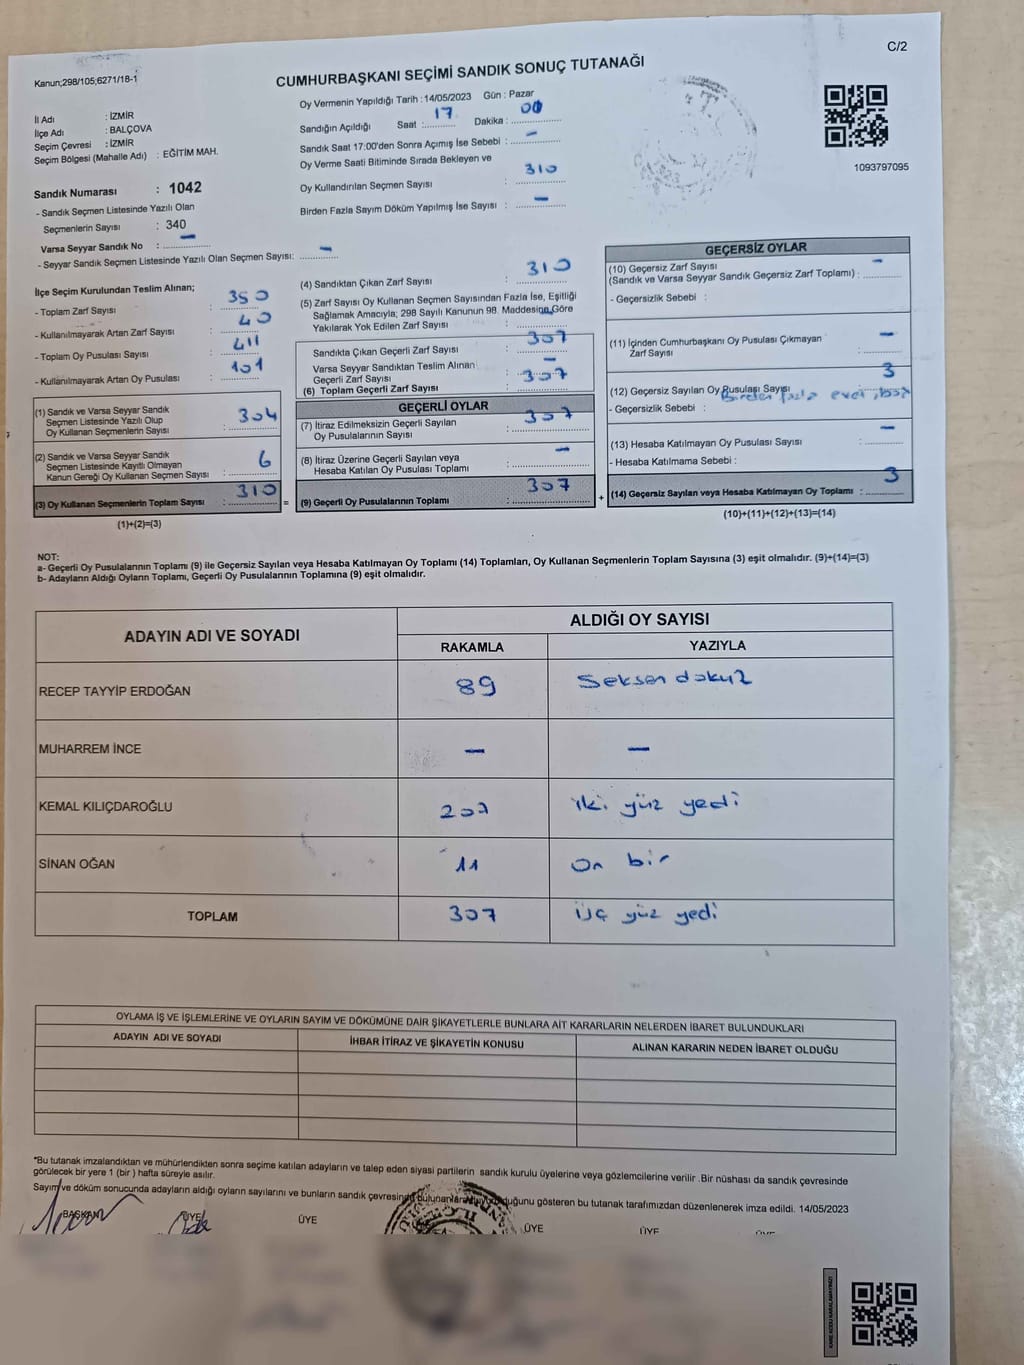 C/2
Kanun;298/105;6271/18-1
CUMHURBAŞKANI SEÇİMİ SANDIK SONUÇ TUTANAĞI
İl Adı : İZMİR
İlçe Adı : BALÇOVA
Seçim Çevresi : İZMİR
Seçim Bölgesi (Mahalle Adı) : EĞİTİM MAH.
Sandık Numarası : 1042
- Sandık Seçmen Listesinde Yazılı Olan
Seçmenlerin Sayısı : 340
Varsa Seyyar Sandık No : -
- Seyyar Sandık Seçmen Listesinde Yazılı Olan Seçmen Sayısı: -
Oy Vermenin Yapıldığı Tarih : 14/05/2023 Gün : Pazar
Sandığın Açıldığı Saat : 17 Dakika : 00
Sandık Saat 17:00'den Sonra Açımış İse Sebebi : -
Oy Verme Saati Bitiminde Sırada Bekleyen ve
Oy Kullandırılan Seçmen Sayısı : 310
Birden Fazla Sayım Döküm Yapılmış İse Sayısı : -
1093797095
İlçe Seçim Kurulundan Teslim Alınan;
- Toplam Zarf Sayısı : 350
- Kullanılmayarak Artan Zarf Sayısı : 40
- Toplam Oy Pusulası Sayısı : 411
- Kullanılmayarak Artan Oy Pusulası : 101
(1) Sandık ve Varsa Seyyar Sandık
Seçmen Listesinde Yazılı Olup
Oy Kullanan Seçmenlerin Sayısı : 304
(2) Sandık ve Varsa Seyyar Sandık
Seçmen Listesinde Kayıtlı Olmayan
Kanun Gereği Oy Kullanan Seçmen Sayısı : 6
(3) Oy Kullanan Seçmenlerin Toplam Sayısı : 310 =
(1)+(2)=(3)
(4) Sandıktan Çıkan Zarf Sayısı : 310
(5) Zarf Sayısı Oy Kullanan Seçmen Sayısından Fazla İse, Eşitliği
Sağlamak Amacıyla; 298 Sayılı Kanunun 98. Maddesine Göre
Yakılarak Yok Edilen Zarf Sayısı : -
Sandıkta Çıkan Geçerli Zarf Sayısı : 307
Varsa Seyyar Sandıktan Teslim Alınan
Geçerli Zarf Sayısı : -
(6) Toplam Geçerli Zarf Sayısı : 307
GEÇERLİ OYLAR
(7) İtiraz Edilmeksizin Geçerli Sayılan
Oy Pusulalarının Sayısı : 307
(8) İtiraz Üzerine Geçerli Sayılan veya
Hesaba Katılan Oy Pusulası Toplamı : -
(9) Geçerli Oy Pusulalarının Toplamı : 307 +
GEÇERSİZ OYLAR
(10) Geçersiz Zarf Sayısı
(Sandık ve Varsa Seyyar Sandık Geçersiz Zarf Toplamı) : -
- Geçersizlik Sebebi :
(11) İçinden Cumhurbaşkanı Oy Pusulası Çıkmayan
Zarf Sayısı : -
(12) Geçersiz Sayılan Oy Pusulası Sayısı : 3
- Geçersizlik Sebebi : Birden fazla evet
(13) Hesaba Katılmayan Oy Pusulası Sayısı : -
- Hesaba Katılmama Sebebi :
(14) Geçersiz Sayılan veya Hesaba Katılmayan Oy Toplamı : 3
(10)+(11)+(12)+(13)=(14)
NOT:
a- Geçerli Oy Pusulalarının Toplamı (9) ile Geçersiz Sayılan veya Hesaba Katılmayan Oy Toplamı (14) Toplamları, Oy Kullanan Seçmenlerin Toplam Sayısına (3) eşit olmalıdır. (9)+(14)=(3)
b- Adayların Aldığı Oyların Toplamı, Geçerli Oy Pusulalarının Toplamına (9) eşit olmalıdır.
ADAYIN ADI VE SOYADI
ALDIĞI OY SAYISI
RAKAMLA YAZIYLA
RECEP TAYYİP ERDOĞAN 89 Seksen dokuz
MUHARREM İNCE - -
KEMAL KILIÇDAROĞLU 207 iki yüz yedi
SİNAN OĞAN 11 On bir
TOPLAM 307 üç yüz yedi
OYLAMA İŞ VE İŞLEMLERİNE VE OYLARIN SAYIM VE DÖKÜMÜNE DAİR ŞİKAYETLERLE BUNLARA AİT KARARLARIN NELERDEN İBARET BULUNDUKLARI
ADAYIN ADI VE SOYADI İHBAR İTİRAZ VE ŞİKAYETİN KONUSU ALINAN KARARIN NEDEN İBARET OLDUĞU
*Bu tutanak imzalandıktan ve mühürlendikten sonra seçime katılan adayların ve talep eden siyasi partilerin sandık kurulu üyelerine veya gözlemcilerine verilir. Bir nüshası da sandık çevresinde
görülecek bir yere 1 (bir ) hafta süreyle asılır.
Sayım ve döküm sonucunda adayların aldığı oyların sayılarını ve bunların sandık çevresinde olduğunu gösteren bu tutanak tarafımızdan düzenlenerek imza edildi. 14/05/2023
BAŞKAN ÜYE ÜYE ÜYE ÜYE ÜYE